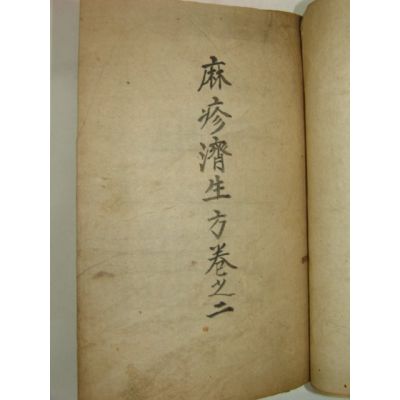 麻疹濟生方卷之二